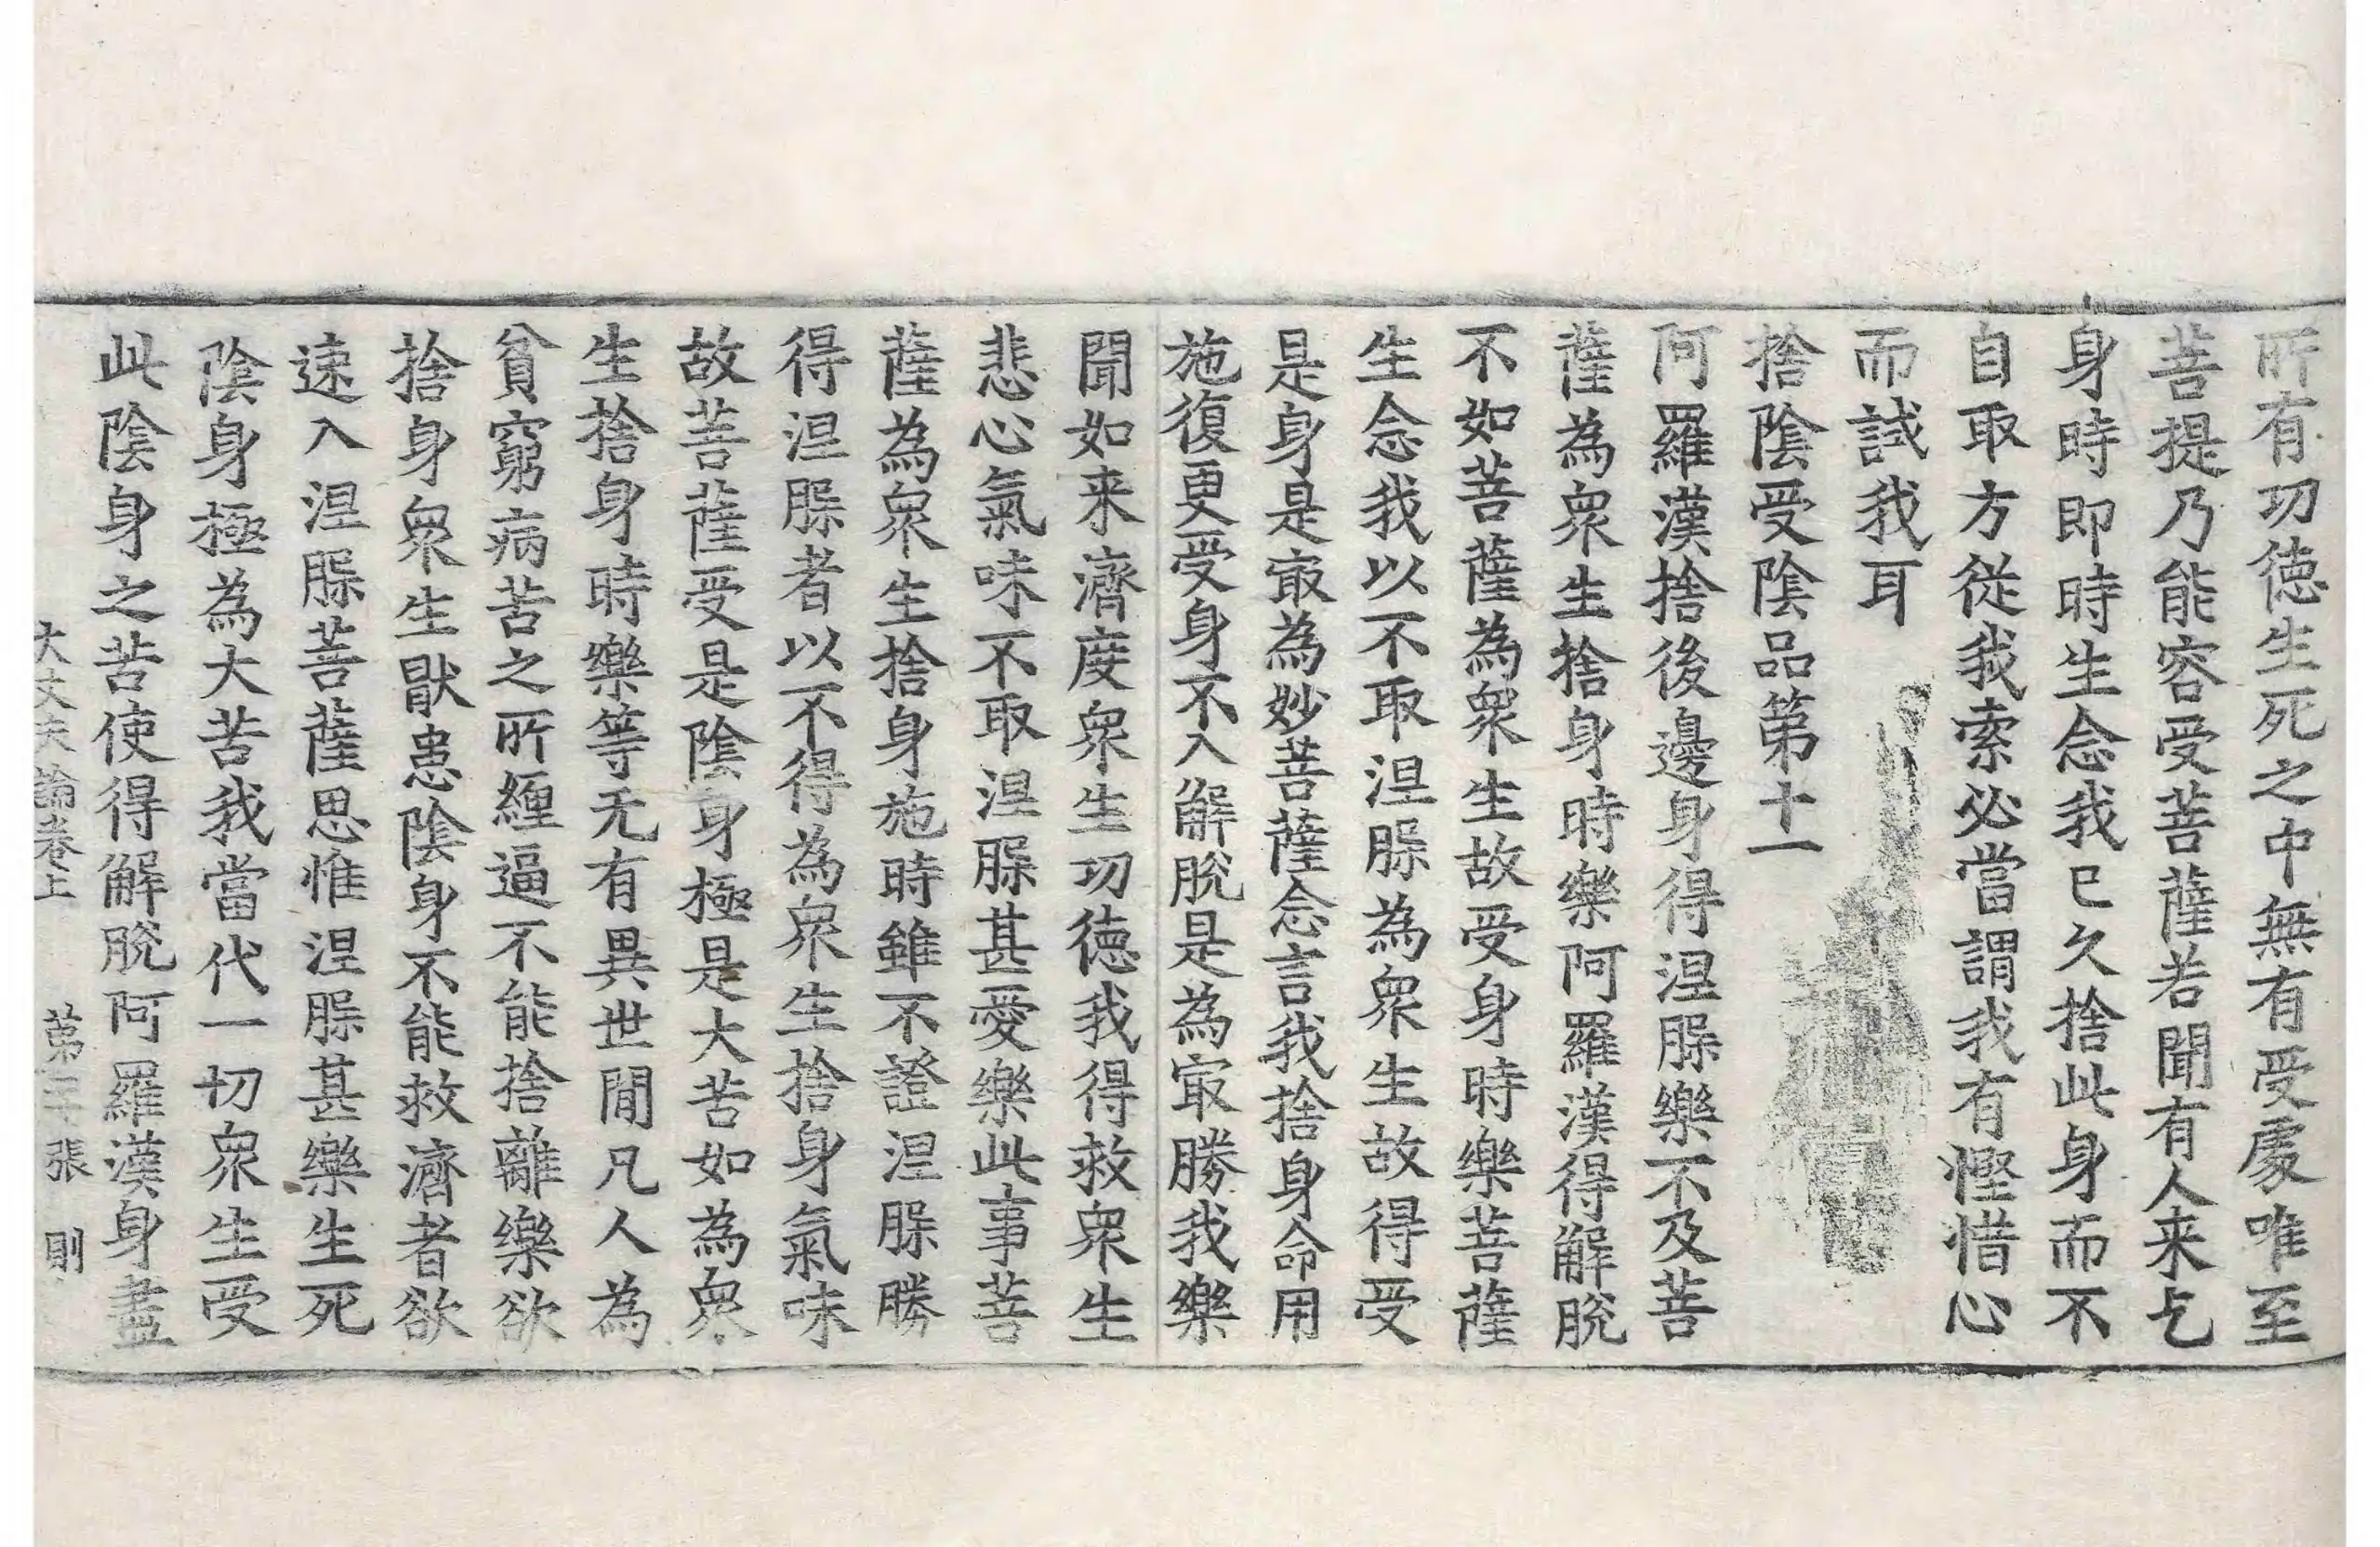 所有功徳生死之中無有受處唯至
菩提乃能容受菩薩若聞有人来乞
身時即時生念我已久捨此身而不
自取方従我索必當謂我有慳惜心
而試我耳
捨陰受陰品第十一
阿羅漢捨後邊身得涅槃樂不及菩
薩為衆生捨身時樂阿羅漢得解脫
不如菩薩為衆生故受身時樂菩薩
生念我以不取涅槃為衆生故得受
是身是㝡為妙菩薩念言我捨身命用
施復更受身不入解脫是為㝡勝我樂
聞如来濟度衆生功徳我得救衆生
悲心氣味不取涅槃甚愛樂此事菩
薩為衆生捨身施時雖不證涅槃勝
得涅槃者以不得為衆生捨身氣味
故菩薩受是陰身極是大苦如為衆
生捨身時樂等无有異世間凡人為
貧窮病苦之所纏逼不能捨離樂欲
捨身衆生猒患陰身不能救濟者欲
速入涅槃菩薩思惟涅槃甚樂生死
陰身極為大苦我當代一切衆生受
此陰身之苦使得解脫阿羅漢身盡
大丈夫論卷上 第二十張 則